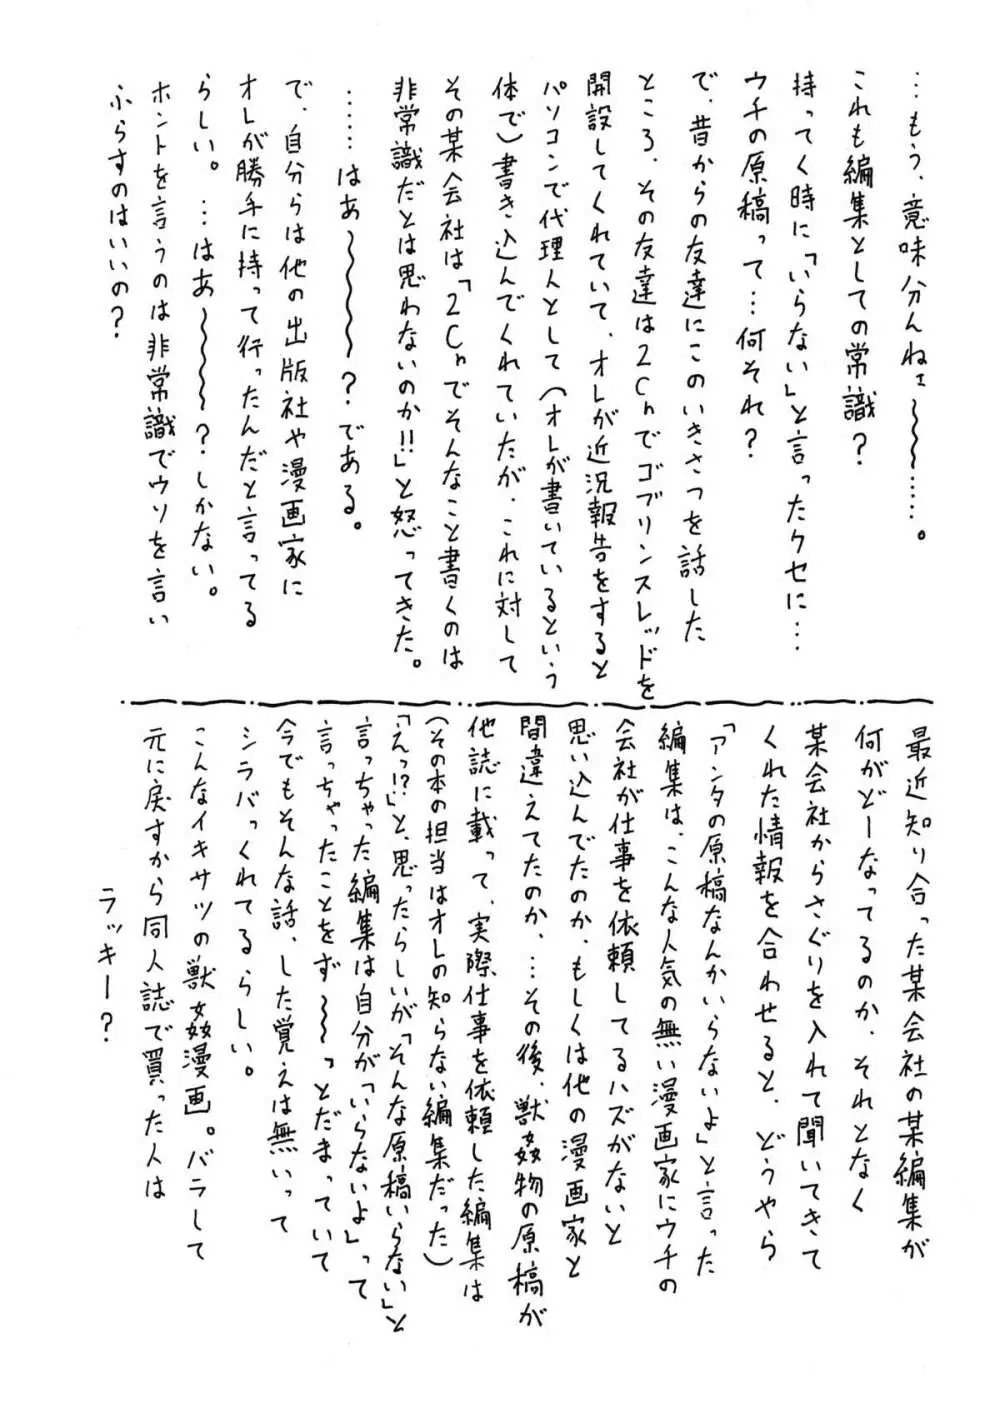 …もう、意味分んねェ～～～……。
これも編集としての常識？
持ってく時に「いらない」と言ったクセに…
ウチの原稿って…何それ？
で、昔からの友達にこのいきさつを話した
ところ、その友達は2Chでゴブリンスレッドを
開設してくれていて、オレが近況報告をすると
パソコンで代理人として（オレが書いているという
体で）書き込んでくれていたが、これに対して
その某会社は「2Chでそんなこと書くのは
非常識だとは思わないのか!!」と怒ってきた。
……はあ～～～～？である。
で、自分らは他の出版社や漫画家に
オレが勝手に持って行ったんだと言ってる
らしい。…はあ～～～～？しかない。
ホントを言うのは非常識でウソを言い
ふらすのはいいの？
最近知り合った某会社の某編集が
何がどーなってるのか、それとなく
某会社からさぐりを入れて聞いてきて
くれた情報を合わせると、どうやら
「アンタの原稿なんかいらないよ」と言った
編集は、こんな人気の無い漫画家にウチの
会社が仕事を依頼してるハズがないと
思い込んでたのか、もしくは他の漫画家と
間違えてたのか、…その後、獣姦物の原稿が
他誌に載って、実際仕事を依頼した編集は
（その本の担当はオレの知らない編集だった）
「えっ!?」と、思ったらしいが「そんな原稿いらない」と
言っちゃった編集は自分が「いらないよ」って
言っちゃったことをず～～っとだまっていて
今でもそんな話、した覚えは無いって
シラバっくれてるらしい。
こんなイキサツの獣姦漫画。バラして
元に戻すから同人誌で買った人は
ラッキー？